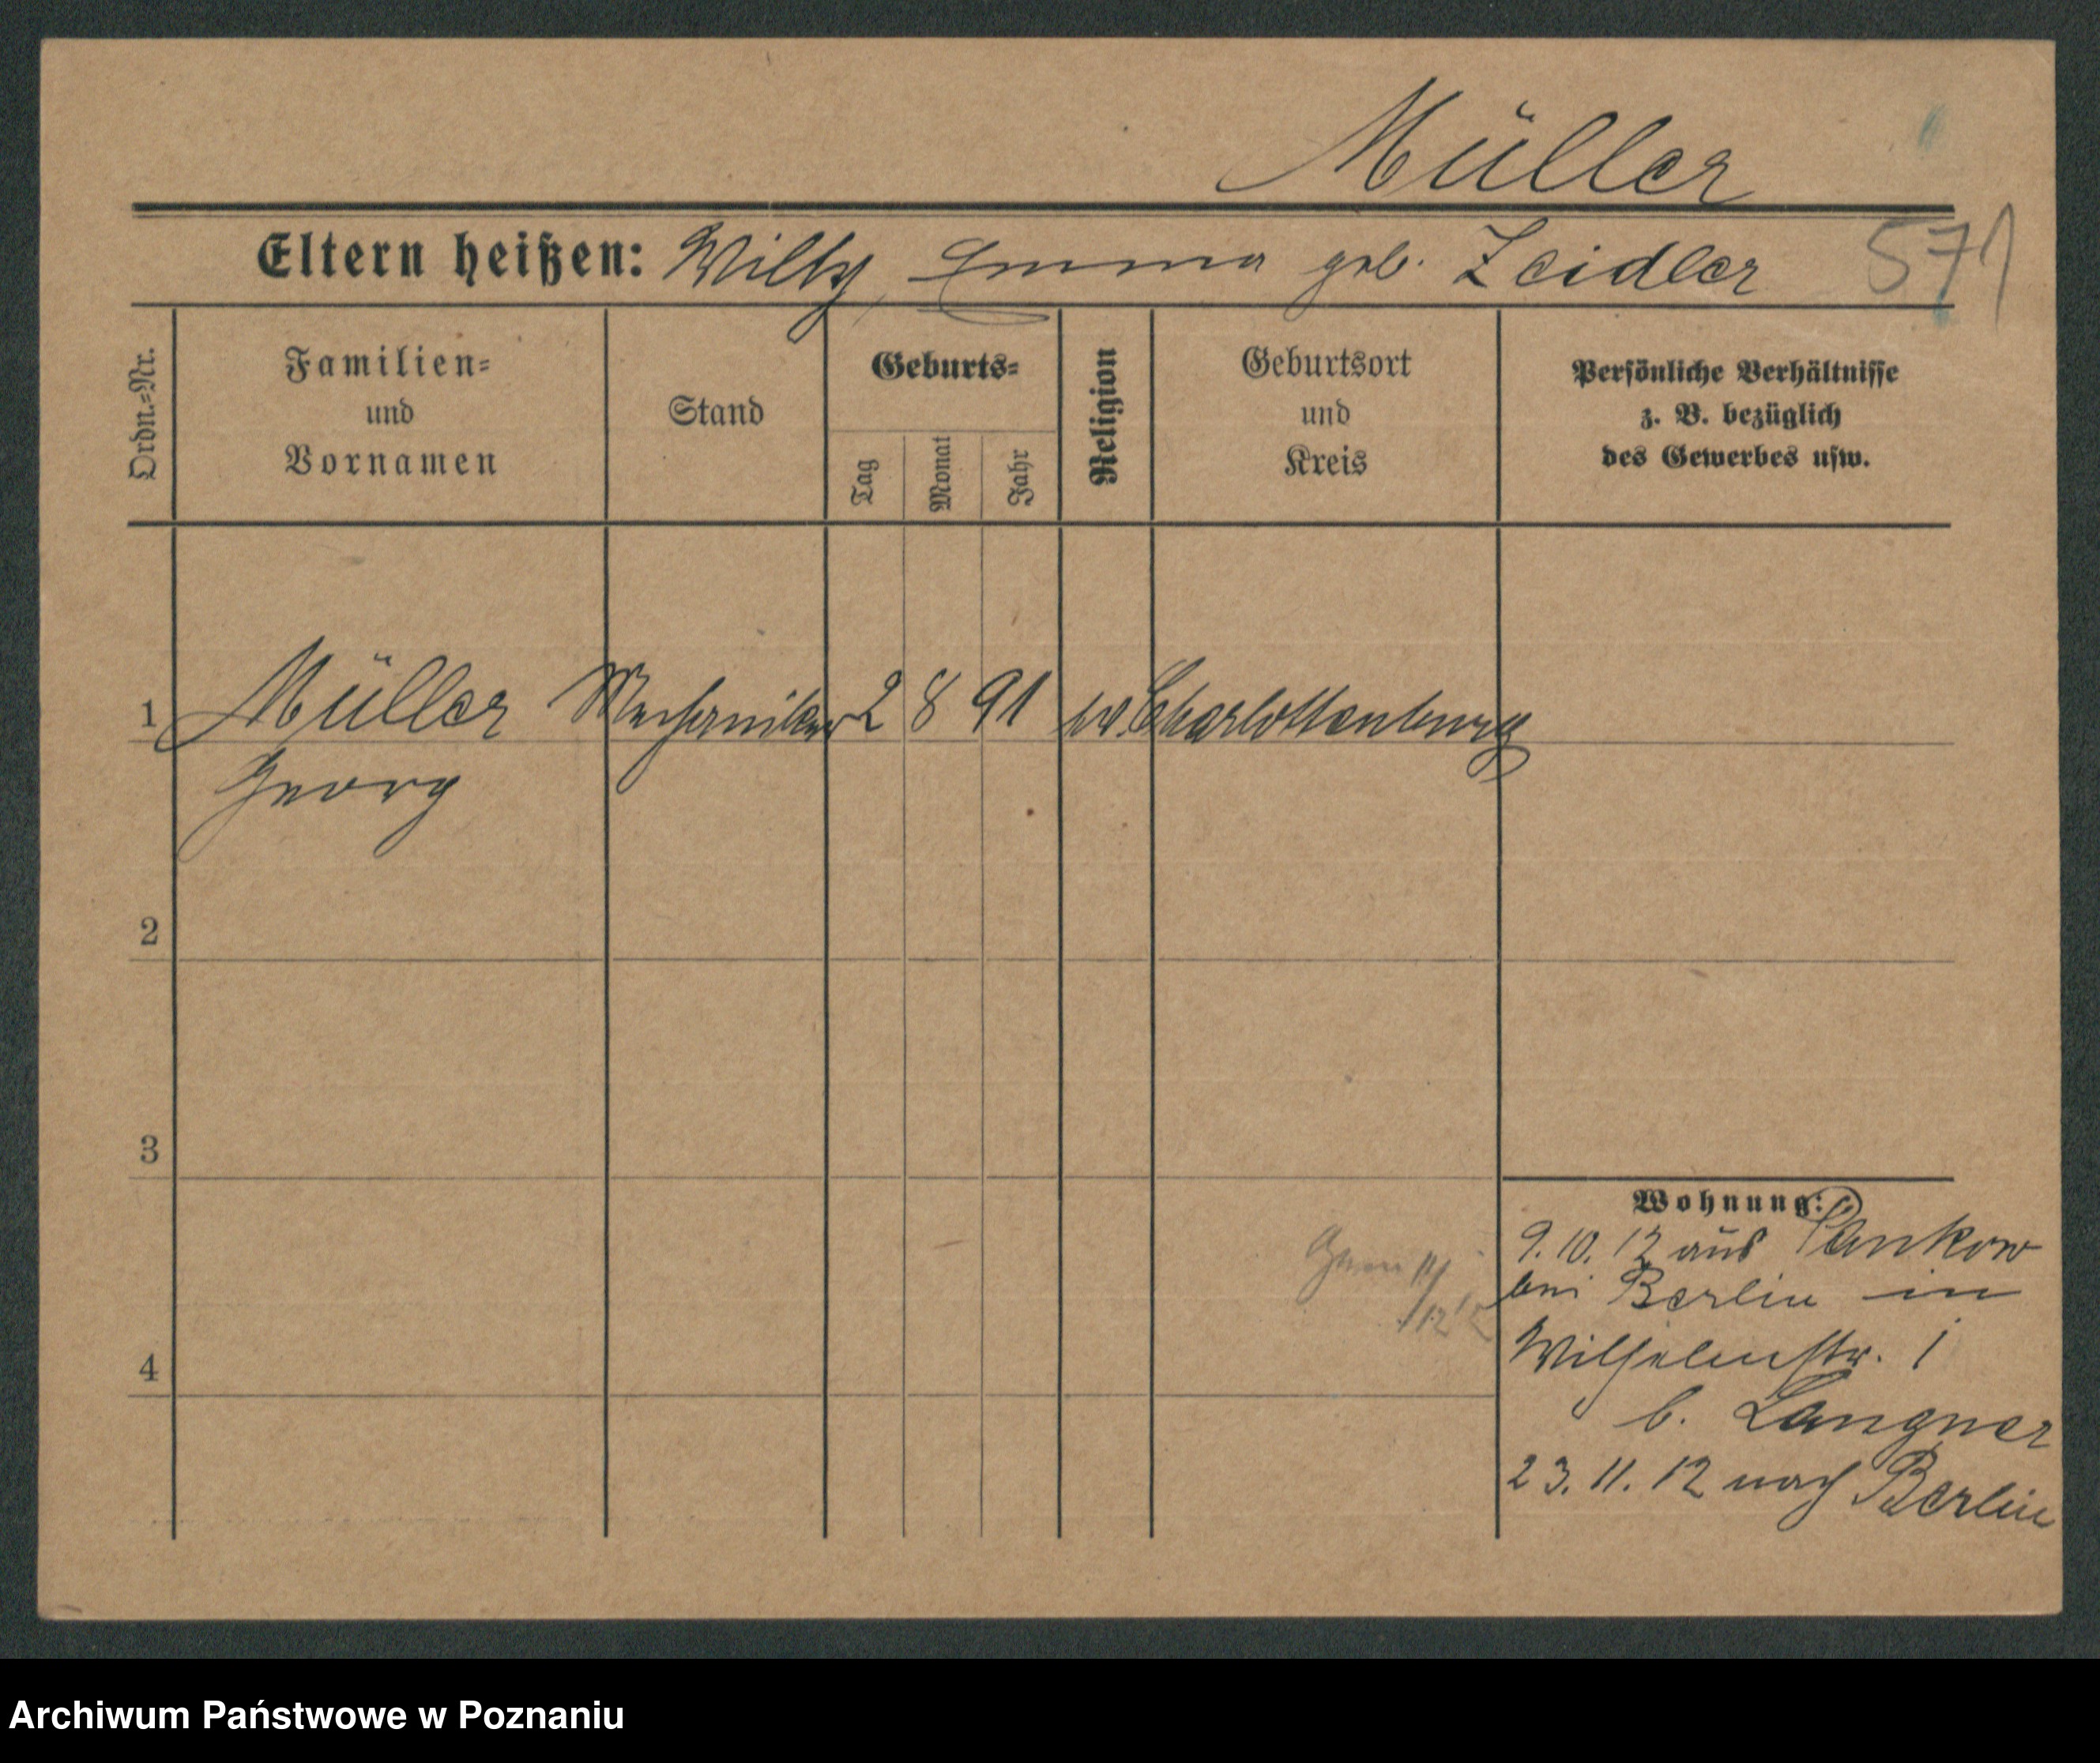 Müller
Eltern heißen: Willy, Emma geb. Zeidler 571
Ordn.-Nr.
Familien- und Vornamen
Stand
Geburts-
Tag
Monat
Jahr
Religion
Geburtsort und Kreis
Persönliche Verhältnisse
z. B. bezüglich
des Gewerbes usw.
1 Müller Mechaniker 2 8 91 ev. Charlottenburg
Georg
2
3
Wohnung:
9.10.12 aus Pankow
bei Berlin in
Wilhelmstr. 1
4
b. Langner
23.11.12 nach Berlin
Archiwum Państwowe w Poznaniu